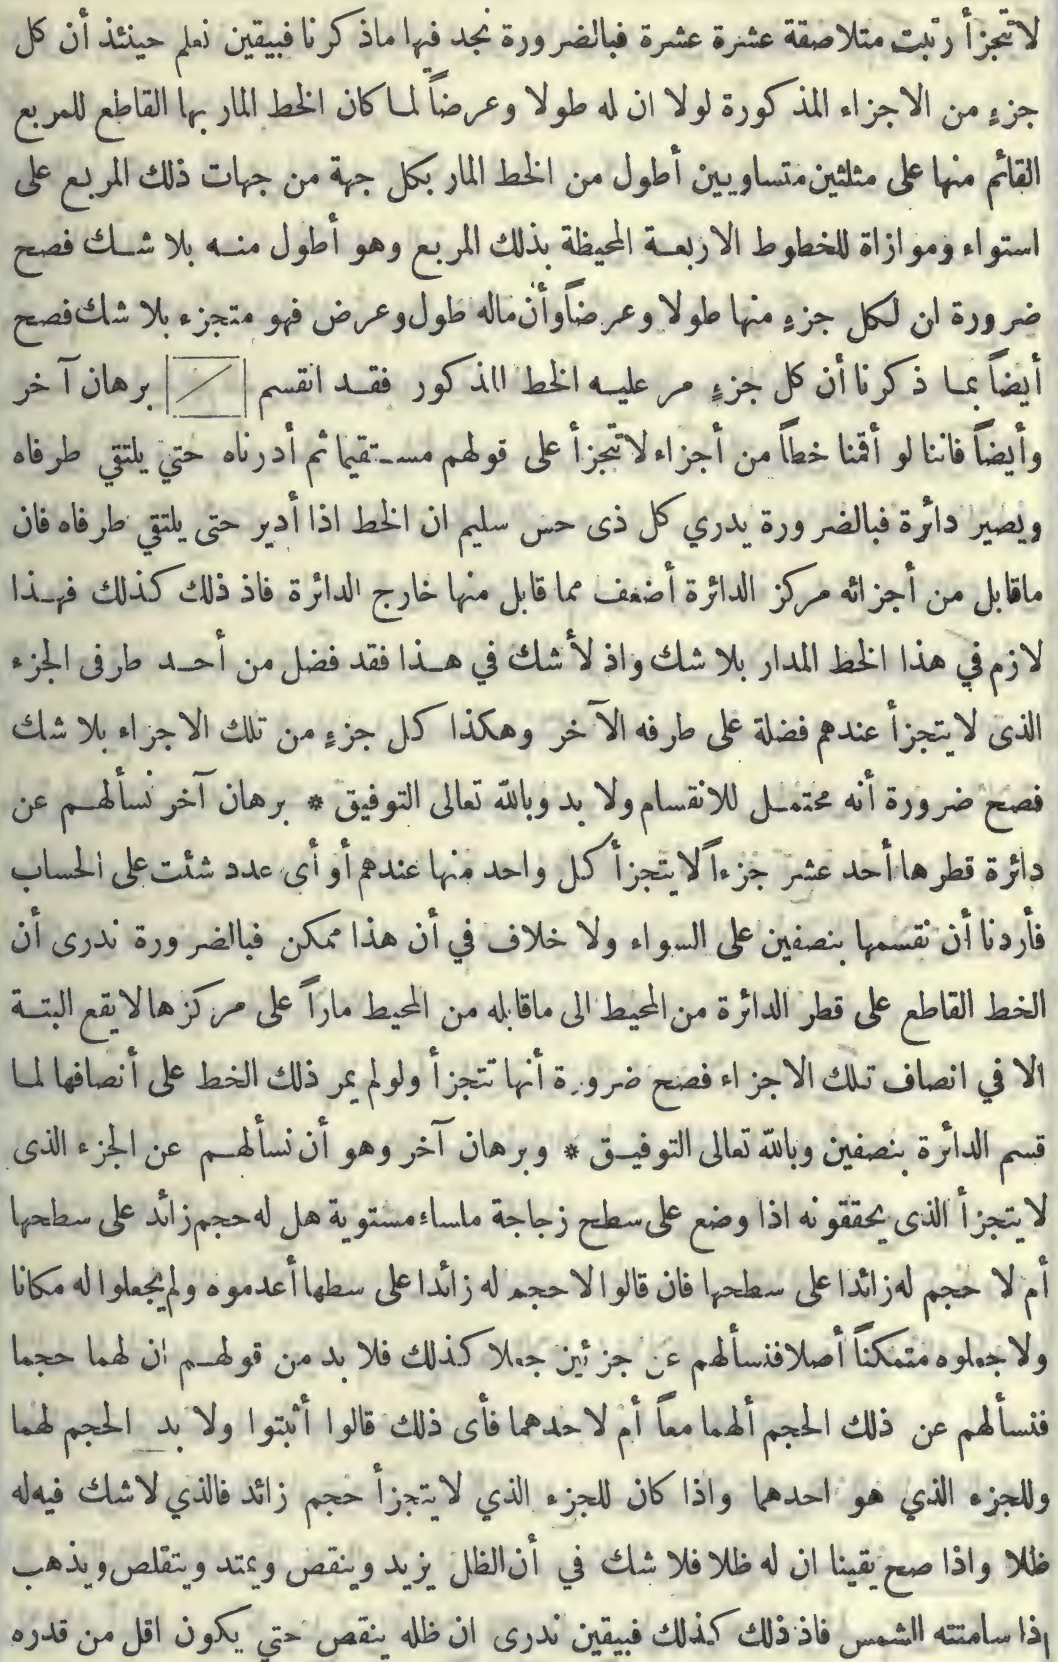 لا تتجزأ رتبت متلاصقة عشرة عشرة فبالضرورة نجد فيها ماذكرنا فبيقين نعلم حينئذ أن كل
جزء من الاجزاء المذكورة لولا ان له طولا وعرضاً لما كان الخط المار بها القاطع للمربع
القائم منها على مثلثين متساويين أطول من الخط المار بكل جهة من جهات ذلك المربع على
استواء وموازاة للخطوط الاربعة المحيظة بذلك المربع وهو أطول منه بلا شك فصح
ضرورة ان لكل جزء منها طولا وعرضاً وأن ماله طول وعرض فهو متجزء بلا شك فصح
أيضاً بما ذكرنا أن كل جزء مر عليه الخط المذكور فقد انقسم برهان آخر
وأيضاً فاننا لو أقمنا خطاً من أجزاء لا تتجزأ على قولهم مستقيما ثم أدرناه حتي يلتقي طرفاه
ويصير دائرة فبالضرورة يدري كل ذى حس سليم ان الخط اذا أدير حتى يلتقي طرفاه فان
ماقابل من أجزائه مركز الدائرة أضعف مما قابل منها خارج الدائرة فاذ ذلك كذلك فهذا
لازم في هذا الخط المدار بلا شك واذ لا شك في هذا فقد فضل من أحد طرفى الجزء
الذى لا يتجزأ عندهم فضلة على طرفه الآخر وهكذا كل جزء من تلك الاجزاء بلا شك
فصح ضرورة أنه محتمل للانقسام ولا بد وبالله تعالى التوفيق * برهان آخر نسألهم عن
دائرة قطرها أحد عشر جزءاً لا يتجزأ كل واحد منها عندهم أو أى عدد شئت على الحساب
فأردنا أن نقسمها بنصفين على السواء ولا خلاف في أن هذا ممكن فبالضرورة ندرى أن
الخط القاطع على قطر الدائرة من المحيط الى ماقابله من المحيط ماراً على مركزها لا يقع البتة
الا في انصاف تلك الاجزاء فصح ضرورة أنها تتجزأ ولولم يمر ذلك الخط على أنصافها لما
قسم الدائرة بنصفين وبالله تعالى التوفيق * وبرهان آخر وهو أن نسألهم عن الجزء الذى
لا يتجزأ الذى يحققونه اذا وضع على سطح زجاجة ملساء مستوية هل له حجم زائد على سطحها
أم لا حجم له زائدا على سطحها فان قالوا لا حجم له زائدا على سطها أعدموه ولم يجعلوا له مكانا
ولا جعلوه متمكناً أصلا فنسألهم عن جزئين جعلا كذلك فلا بد من قولهم ان لهما حجما
فنسألهم عن ذلك الحجم ألهما معاً أم لاحدهما فأى ذلك قالوا أثبتوا ولا بد الحجم لهما
وللجزء الذي هو احدهما واذا كان للجزء الذي لا يتجزأ حجم زائد فالذي لا شك فيه له
ظلا واذا صح يقينا ان له ظلا فلا شك في أن الظل يزيد وينقص ويمتد ويتقلص ويذهب
اذا سامتته الشمس فاذ ذلك كذلك فبيقين ندرى ان ظله ينقص حتي يكون اقل من قدره